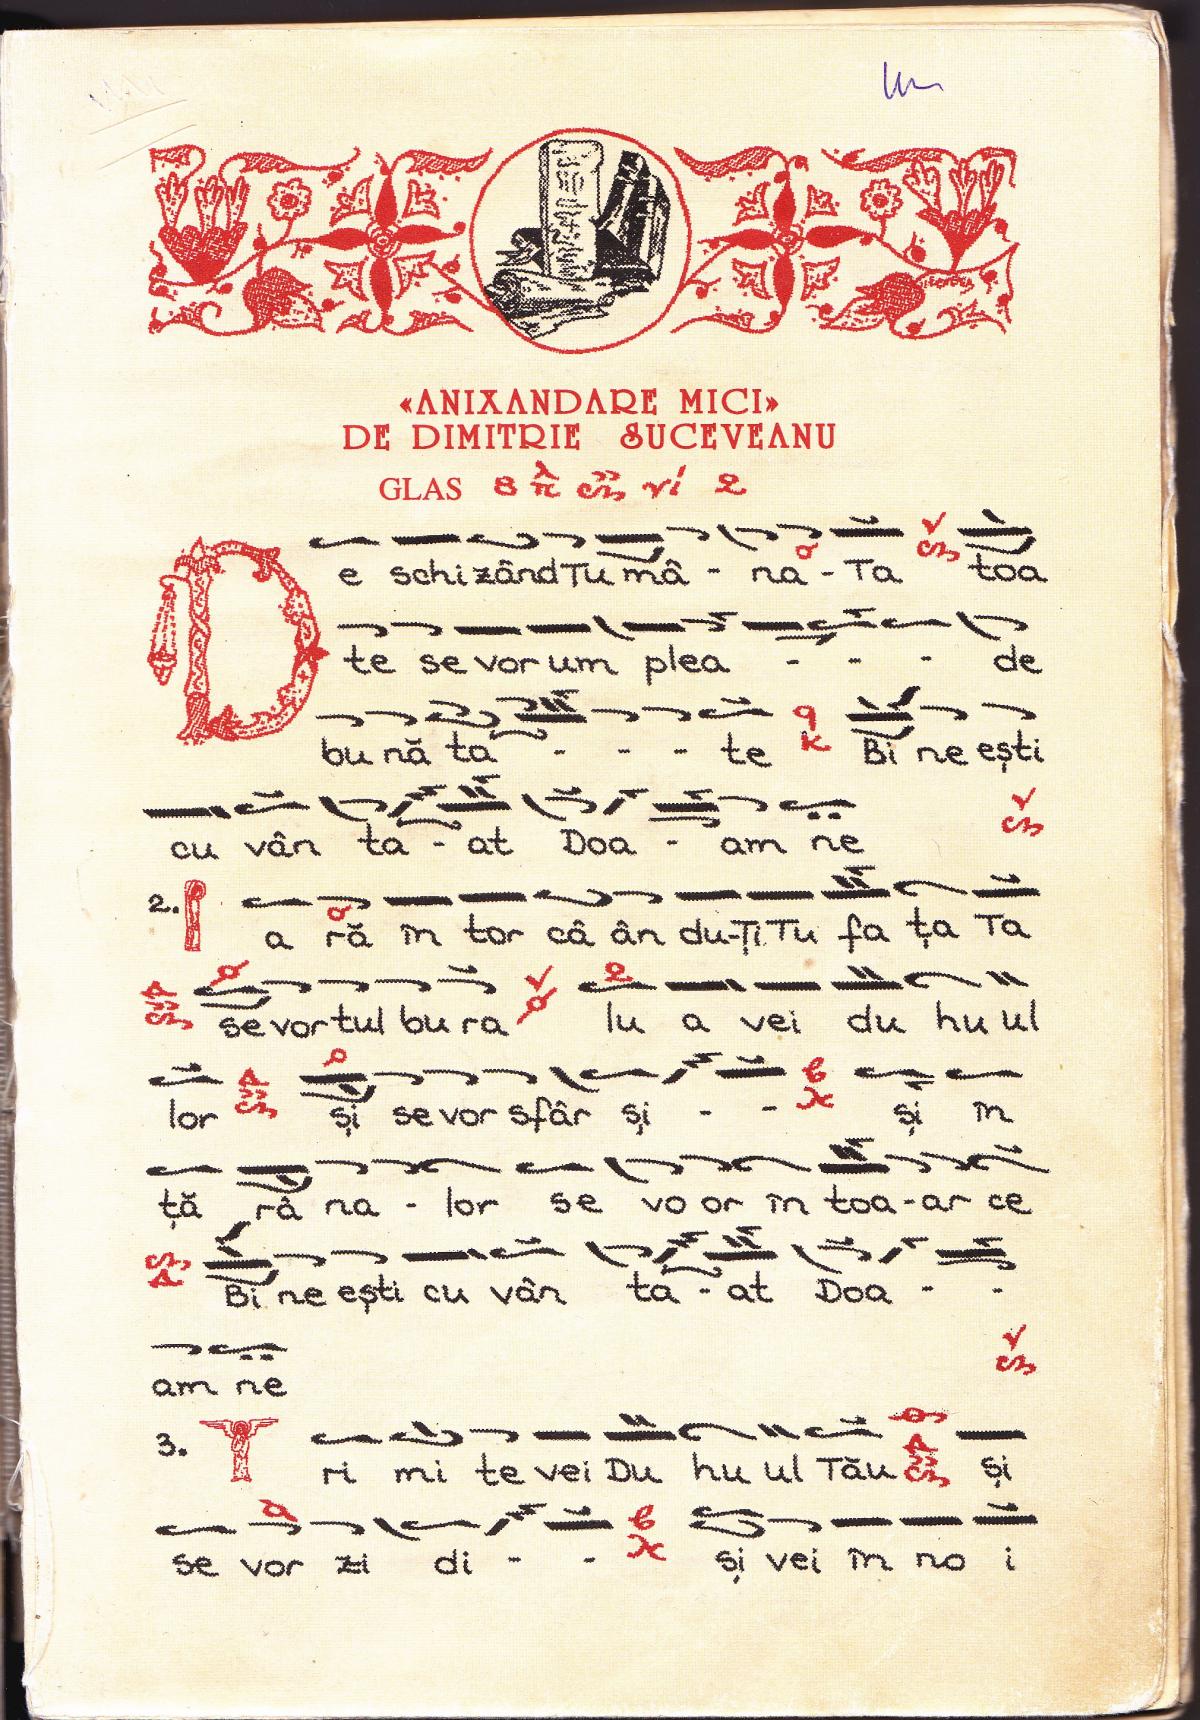 «ANIXANDARE MICI»
DE DIMITRIE SUCEVEANU
GLAS 8
De schizând Tu mâ - na - Ta toa
te se vor um plea - - - de
bu nă ta - - - te Bi ne ești
cu vân ta - at Doa - am ne
2. I a ră în tor câ ân du-Ți Tu fa ța Ta
se vor tul bu ra lu a vei du hu ul
lor și se vor sfâr și - - și în
ță râ na - lor se vo or în toa - ar ce
Bi ne ești cu vân ta - at Doa - -
am ne
3. T ri mi te vei Du hu ul Tău și
se vor zi di - - și vei în no i